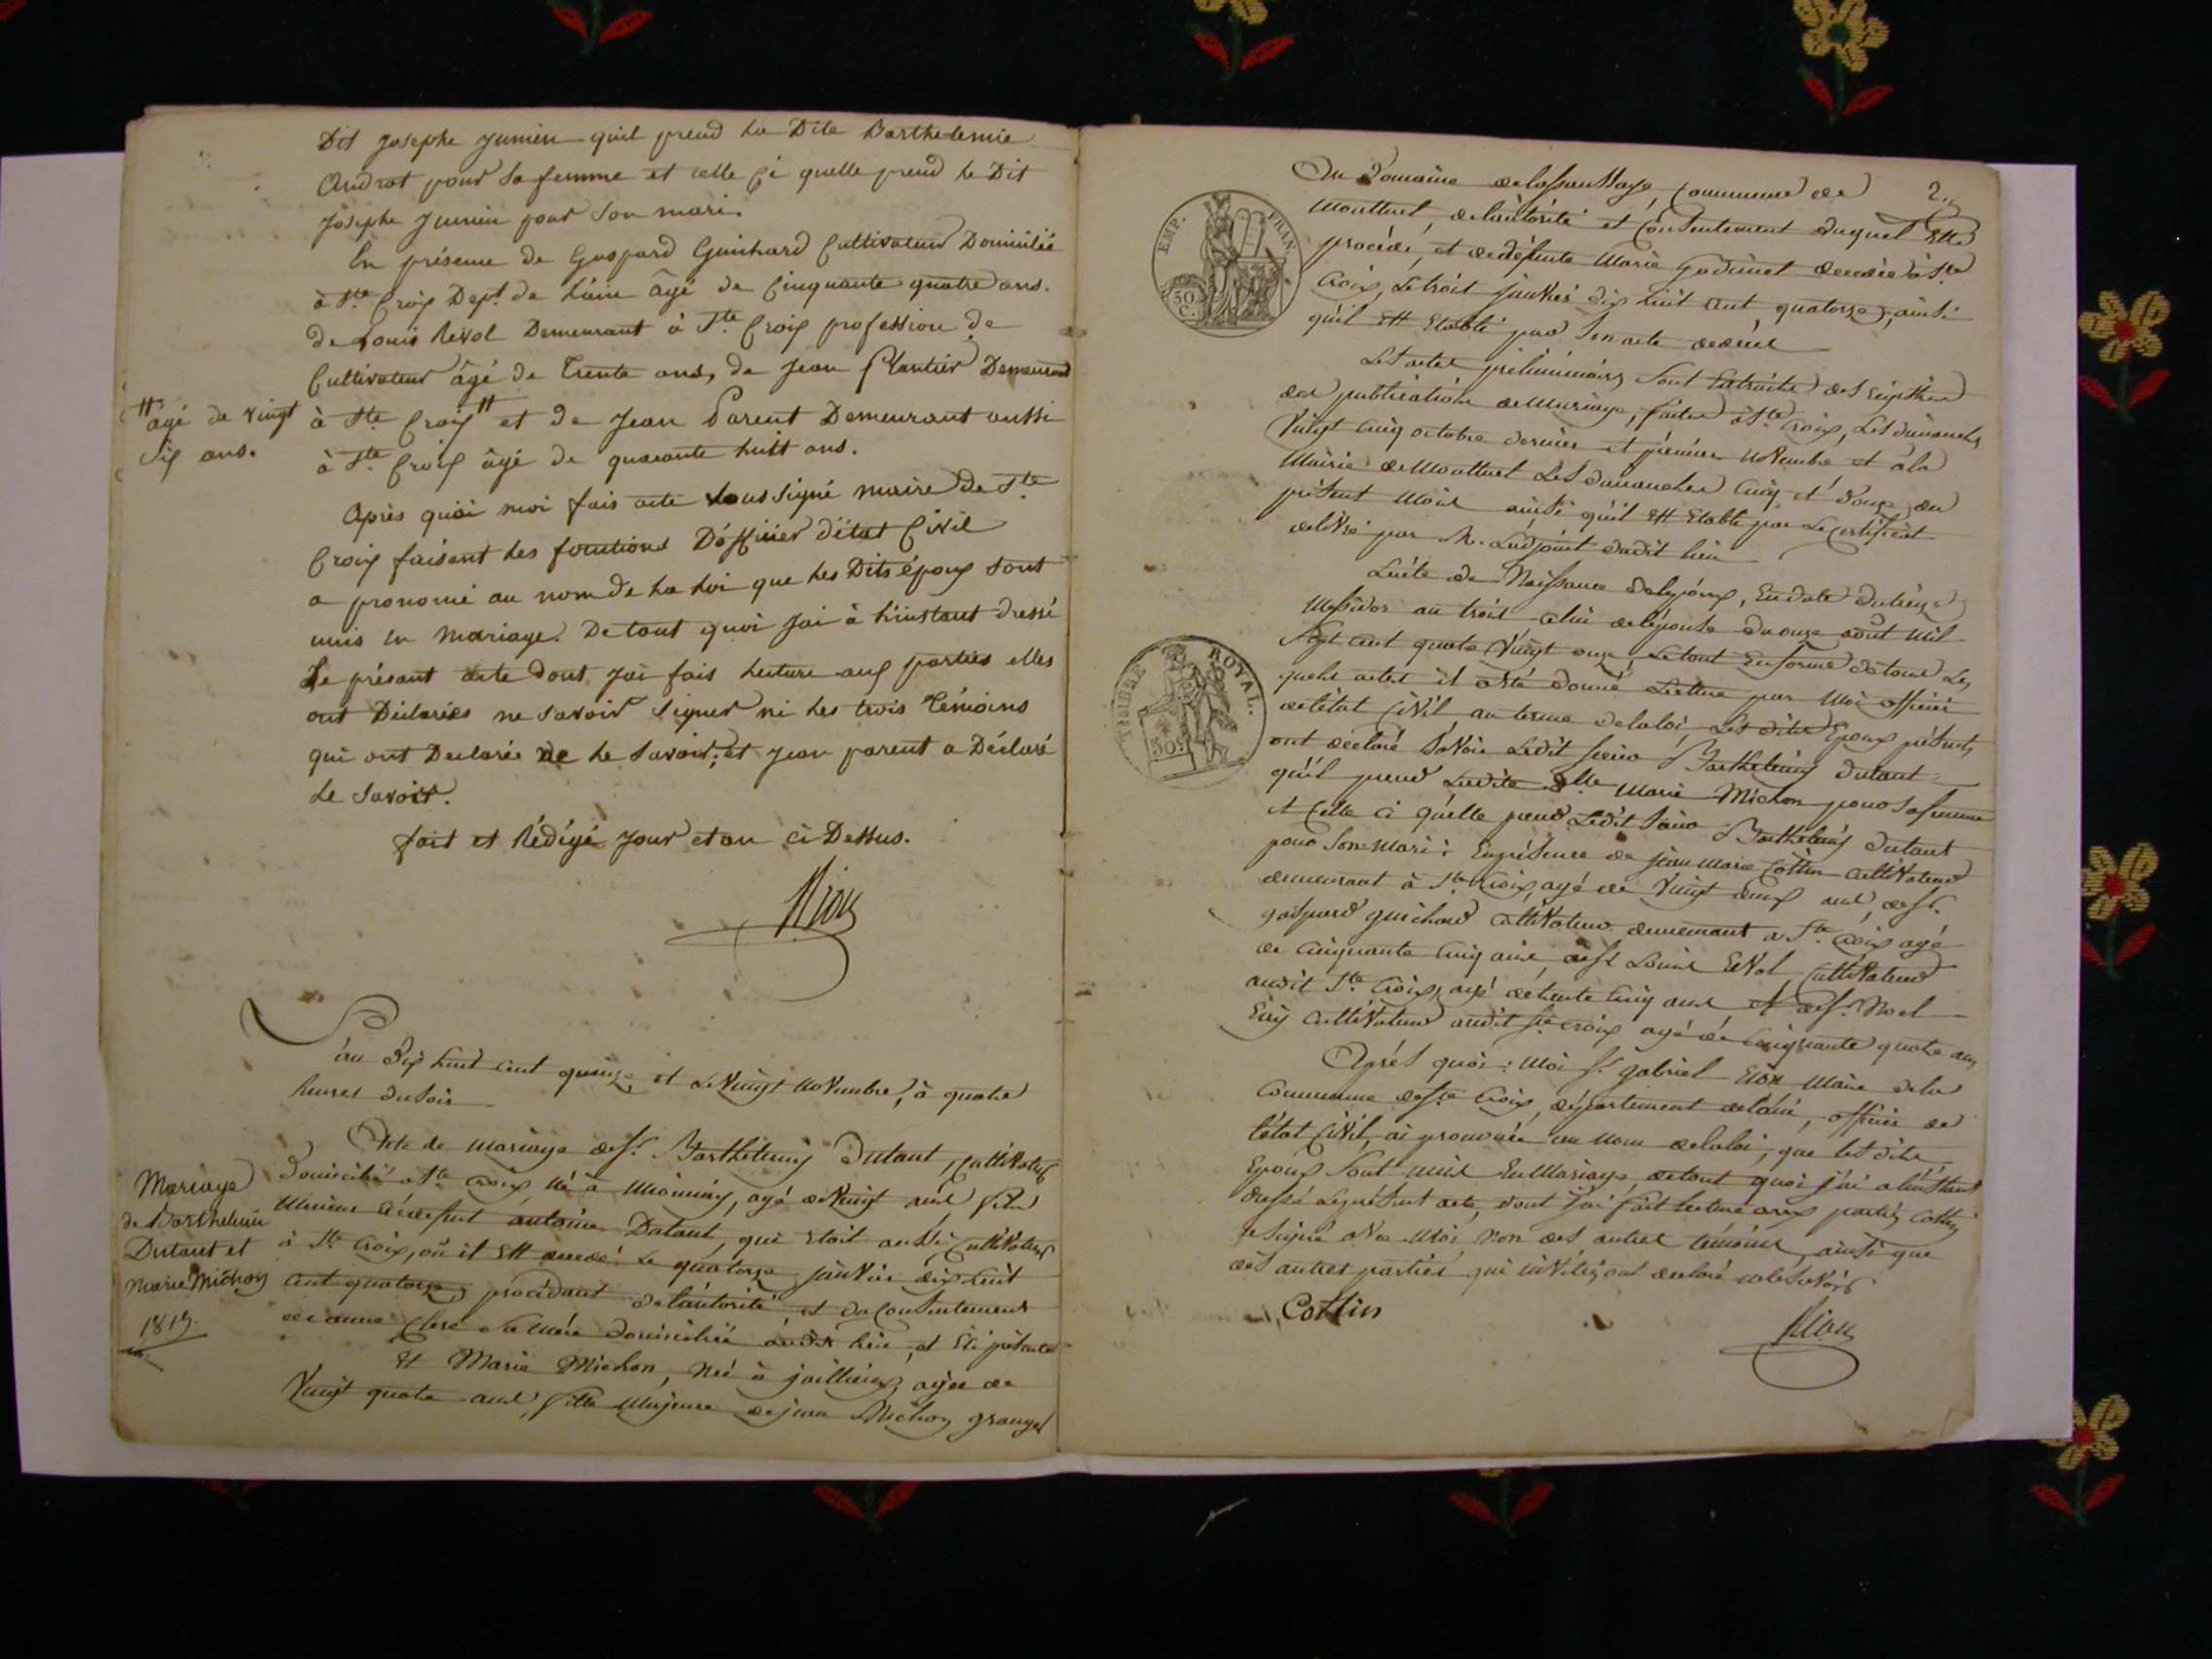 Dit Josephe Jumieu quil prend la Dite Barthelemie
Andrat pour Sa femme et celle Ci quelle prend le Dit
Josephe Jumieu pour Son mari.
En présence de Gaspard Guichard Cultivateur Domicilié
à Ste Croix Dept de L'ain âgé de Cinquante quatre ans.
de Louis Revol Demeurant à Ste Croix profession de
Cultivateur âgé de Trente ans, de Jean Plantier Demeurant
à Ste Croix # et de Jean Parent Demeurant aussi
à Ste Croix âgé de quarante huit ans.
# âgé de vingt
Six ans.
Après quoi moi fais acte Sous Signé maire De Ste
Croix faisent les fonctions D'officier d'état Civil
a prononcé au nom de la Loi que les Dits époux Sont
unis en Mariage. De tout quoi Jai à L'instant dressé
Le présant acte dont Jai fais Lecture aux parties elles
ont Déclarées ne Savoir Signer ni les trois Témoins
qui ont Declarée ne le Savoir, et Jean parent a Déclaré
Le Savoir.
fait et Rédigé Jour et an ci Dessus.
Rion
L'an Dix huit cent quinze et Le Vingt Novembre, à quatre
heures du Soir
Acte de mariage de Sr. Barthélemy Dutant, Cultivateur
domicilié a Ste Croix Né à Mionnay, agé de Vingt ans fils
Mineur de defunt antoine Dutant, qui etoit aussi Cultivateur
à Ste Croix, où il Est decedé Le quatorze janvier dix huit
cent quatorze, procédant de l'autorité et du Consentement
de anne Clere Sa Mére domiciliée audit lieu, et Ici présente
Et Marie Michon, Née à jailleux, agée de
Vingt quatre ans, fille Majeure de jean Michon granger
Mariage
de Barthelemie
Dutant et
Marie Michon
1815.
EMP. FRAN.
50
C.
2
Du Domaine de Commune de
Montluel, de l'autorité et Consentement duquel Elle
procède, et de défunte Marie Godinet decedée à Ste
Croix, Le trois janvier dix huit cent quatorze, ainsi
qu'il Est Etabli par Son acte de décès
Les actes préliminaires Sont Extraits des Registres
des publications de Mariage, faites à Ste Croix, Les dimanches
Vingt cinq octobre dernier et prémier Novembre et à la
Mairie de Montluel Les dimanches Cinq et douze du
présent Mois ainsi qu'il Est Etabli par Le Certificat
délivré par M. L'adjoint dudit lieu
L'acte de Naissance de l'époux, En date du treize
Messidor an trois celui de l'épouse du onze août Mil
Sept cent quatre Vingt onze, Le tout En forme de tous Les
quels actes il a été donné Lecture par Moi officier
de l'état Civil au terme de la loi, Les dits Epoux présents,
ont declaré Savoir Ledit Sieur Barthélemy dutant
qu'il prend Ladite Dlle Marie Michon pour Sa femme
et Celle Ci qu'elle prend Ledit Sieur Barthélemy dutant
pour Son Mari : En présence de jean Marie Cottin Cultivateur
demeurant à Ste Croix, agé de Vingt deux ans, de Sr.
gaspard guichard Cultivateur demeurant à Ste Croix agé
de Cinquante Cinq ans, de Sr Louis Revol Cultivateur
audit Ste Croix, agé de trente Cinq ans, et de Sr. Noel
Cultivateur audit Ste Croix agé de Cinquante quatre ans
Après quoi : Moi Sr. gabriel Rion Maire de la
Commune de Ste Croix, département de l'ain, officier de
l'état Civil, ai prononcé au Nom de la loi, que les dits
Epoux Sont unis En Mariage, de tout quoi j'ai a l'instant
dressé Le présent acte, dont j'ai fait lecture aux parties, Cottin
a Signé avec Moi Non les autres témoins, ainsi que
des autres parties qui invités, ont declaré ne le Savoir
Cottin
Rion
TIMBRE ROYAL.
50c